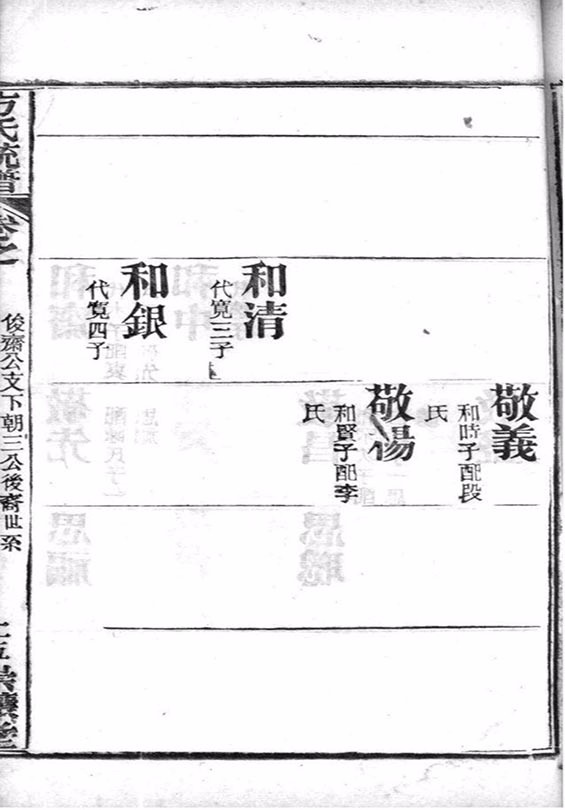 敬義
和時子配段
氏
敬
和賢子配李
氏
和清
代寬三子
和銀
代寬四子
方氏統譜
卷之
俊齋公支下朝三公後裔世系